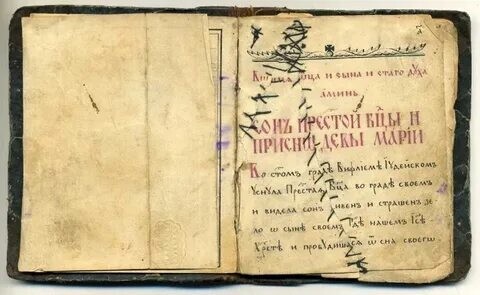 Во имѧ ѿца и сына и стаго дѹха
аминь
Сонъ прест҃ой бцы и
приснѡ девы марїи
Во стомъ граде Вифлиемѣ Іѹдейском
Уснула Прест҃ая Бца во граде своемъ
и видела сонъ дивенъ и страшенъ зе
ло ѡ сыне своемъ Где нашемъ Ісе
Христѣ и пробѹдишася ѿ сна своегѡ